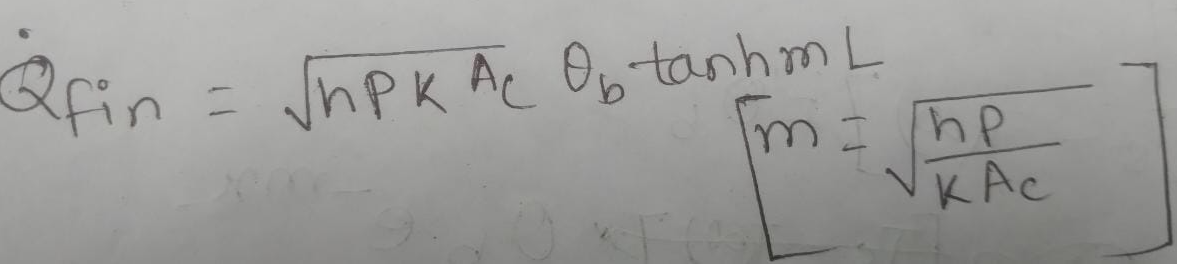 Q̇fin = √hPKAc θb tanhmL
[m = √hP/KAc]